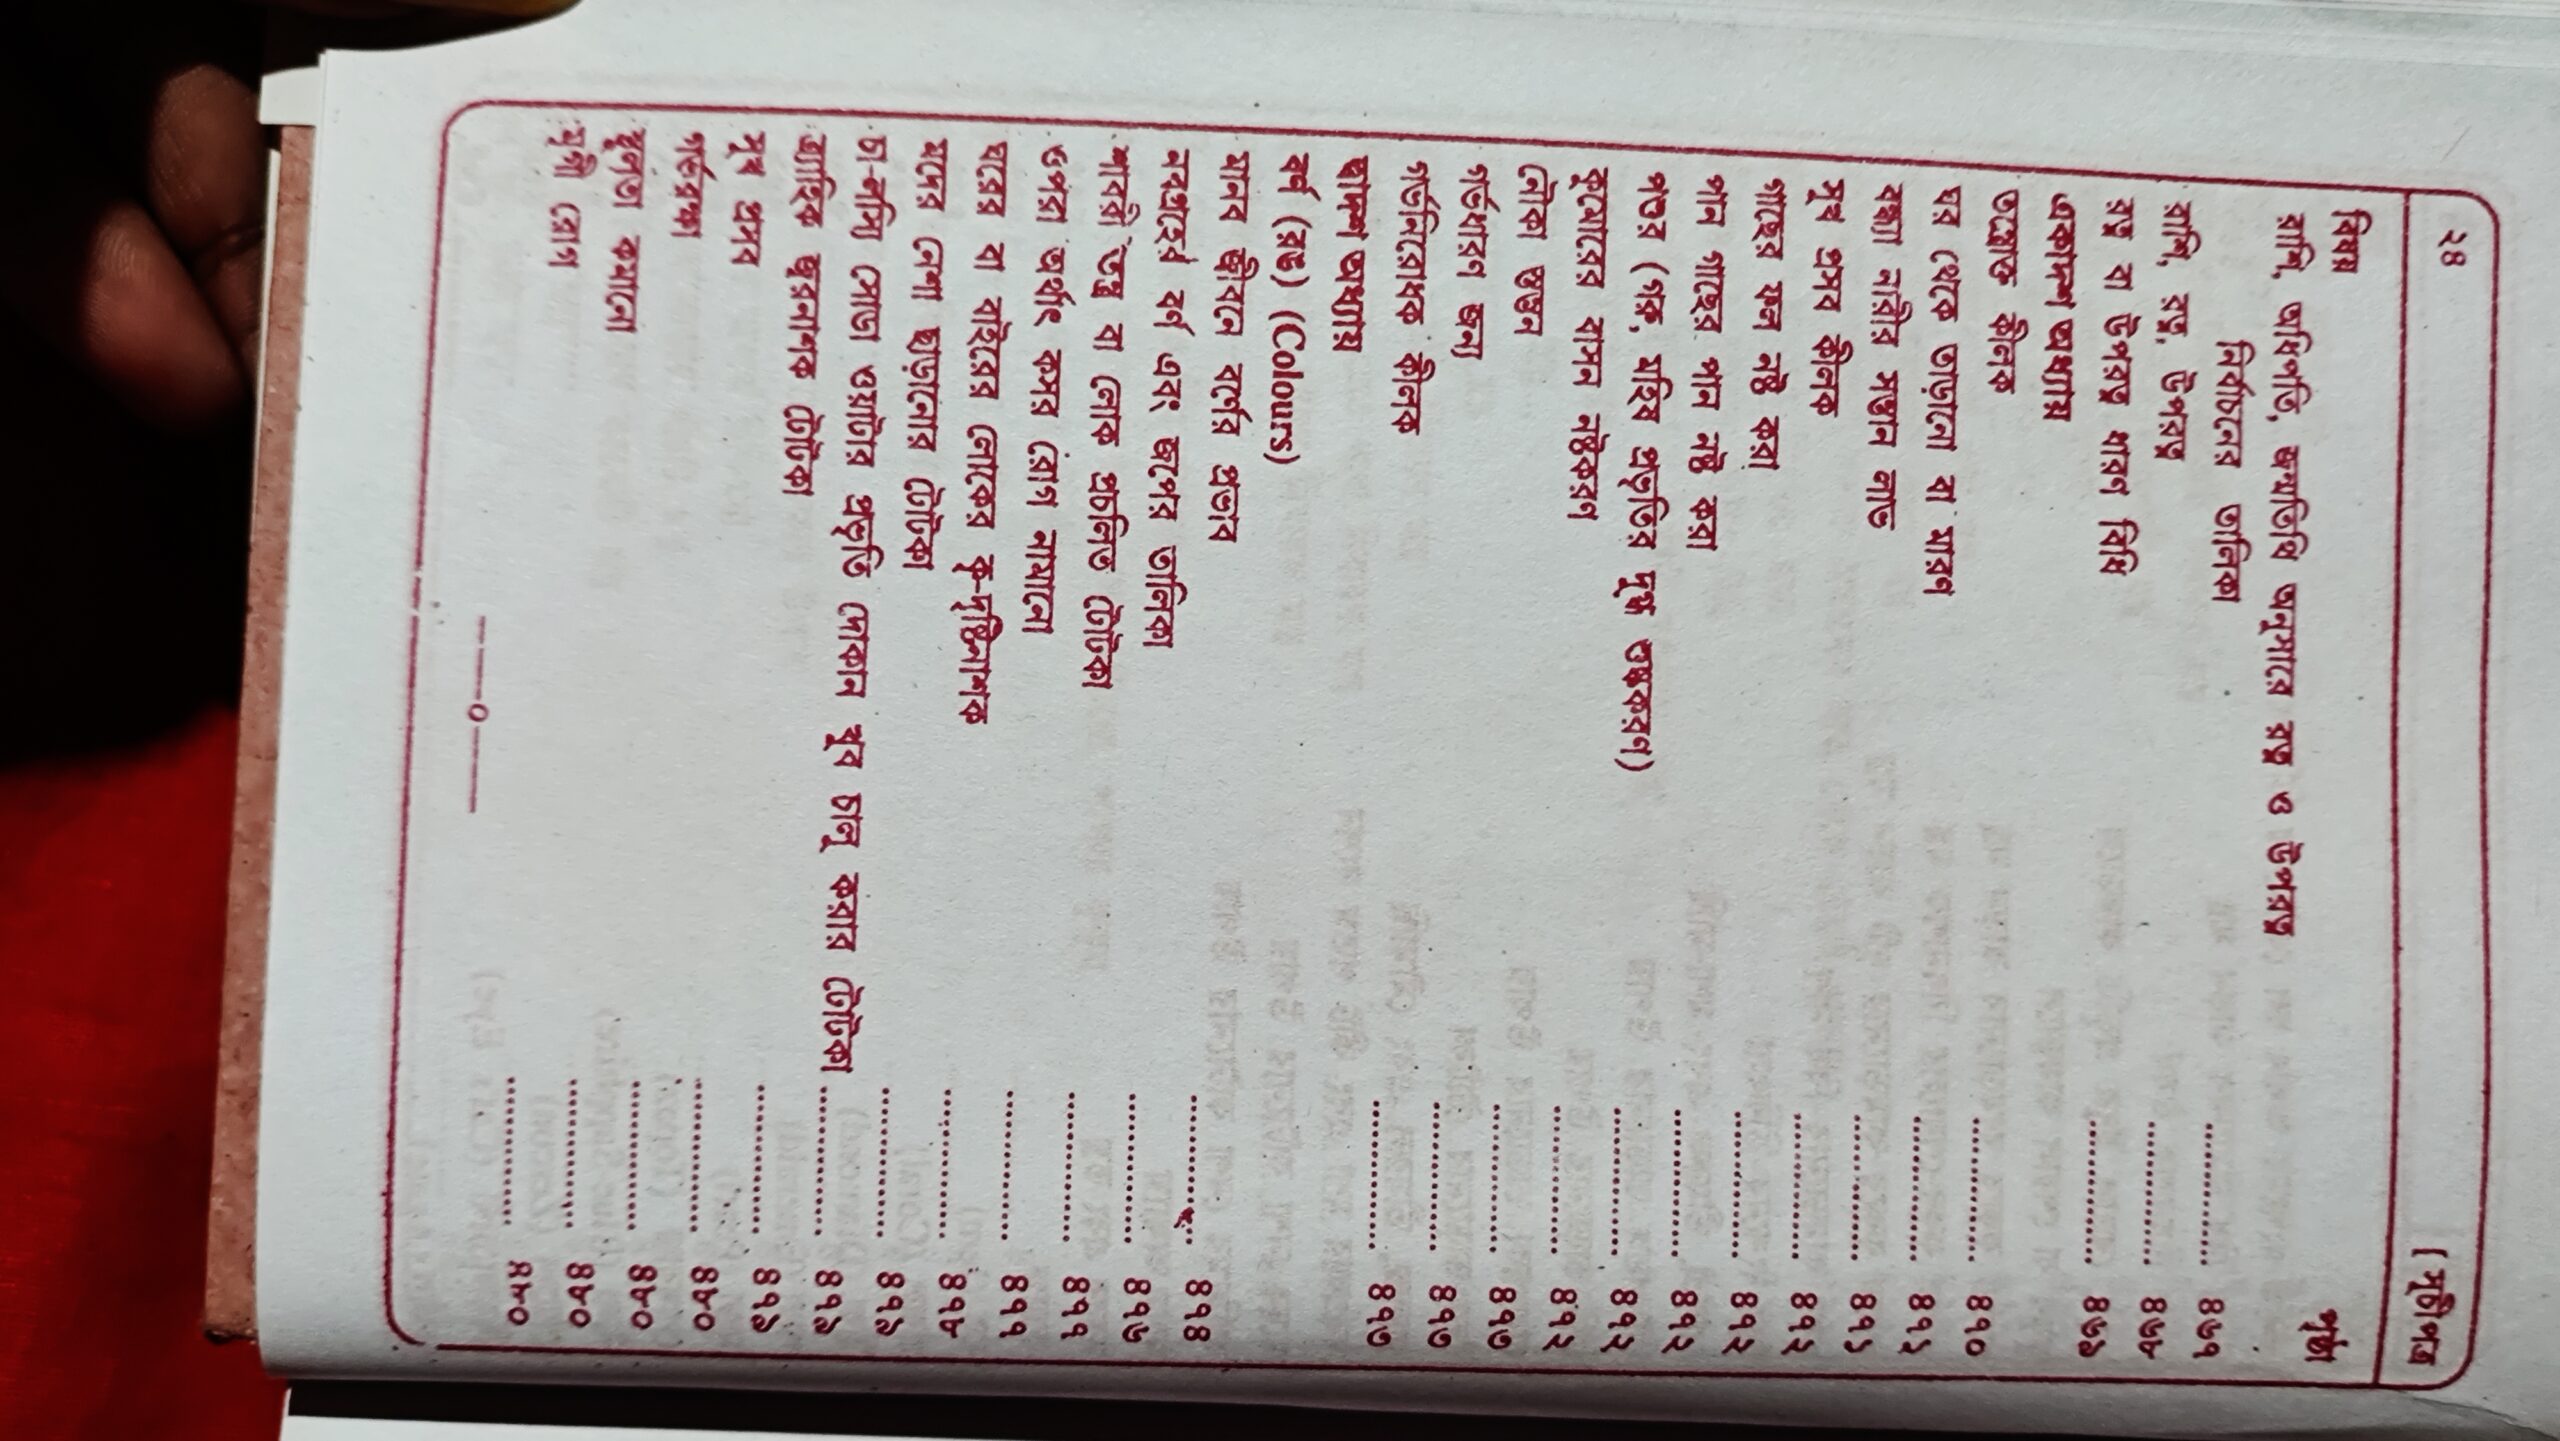 ২৪ [ সূচীপত্র
বিষয় পৃষ্ঠা
রাশি, অধিপতি, জন্মতিথি অনুসারে রত্ন ও উপরত্ন
নির্বাচনের তালিকা ............... ৪৬৭
রাশি, রত্ন, উপরত্ন ............... ৪৬৮
রত্ন বা উপরত্ন ধারণ বিধি ............... ৪৬৯
একাদশ অধ্যায়
তন্ত্রোক্ত কীলক ............... ৪৭০
ঘর থেকে তাড়ানো বা মারণ ............... ৪৭১
বন্ধ্যা নারীর সন্তান লাভ ............... ৪৭১
সুখ প্রসব কীলক ............... ৪৭২
গাছের ফল নষ্ট করা ............... ৪৭২
পান গাছের পান নষ্ট করা ............... ৪৭২
পশুর (গরু, মহিষ প্রভৃতির দুগ্ধ শুষ্ককরণ) ............... ৪৭২
কুমোরের বাসন নষ্টকরণ ............... ৪৭২
নৌকা স্তম্ভন ............... ৪৭৩
গর্ভধারণ জন্য ............... ৪৭৩
গর্ভনিরোধক কীলক ............... ৪৭৩
দ্বাদশ অধ্যায়
বর্ণ (রঙ) (Colours)
মানব জীবনে বর্ণের প্রভাব ............... ৪৭৪
নবগ্রহের বর্ণ এবং জপের তালিকা ............... ৪৭৬
শাবরী তন্ত্র বা লোক প্রচলিত টোটকা ............... ৪৭৭
ওপরা অর্থাৎ কসর রোগ নামানো ............... ৪৭৭
ঘরের বা বাইরের লোকের কু-দৃষ্টিনাশক ............... ৪৭৮
মদের নেশা ছাড়ানোর টোটকা ............... ৪৭৯
চা-লস্যি সোডা ওয়াটার প্রভৃতি দোকান খুব চালু করার টোটকা ............... ৪৭৯
ত্রাহিক জ্বরনাশক টোটকা ............... ৪৭৯
সুখ প্রসব ............... ৪৮০
গর্ভরক্ষা ............... ৪৮০
স্থূলতা কমানো ............... ৪৮০
মৃগী রোগ ............... ৪৮০
———০———